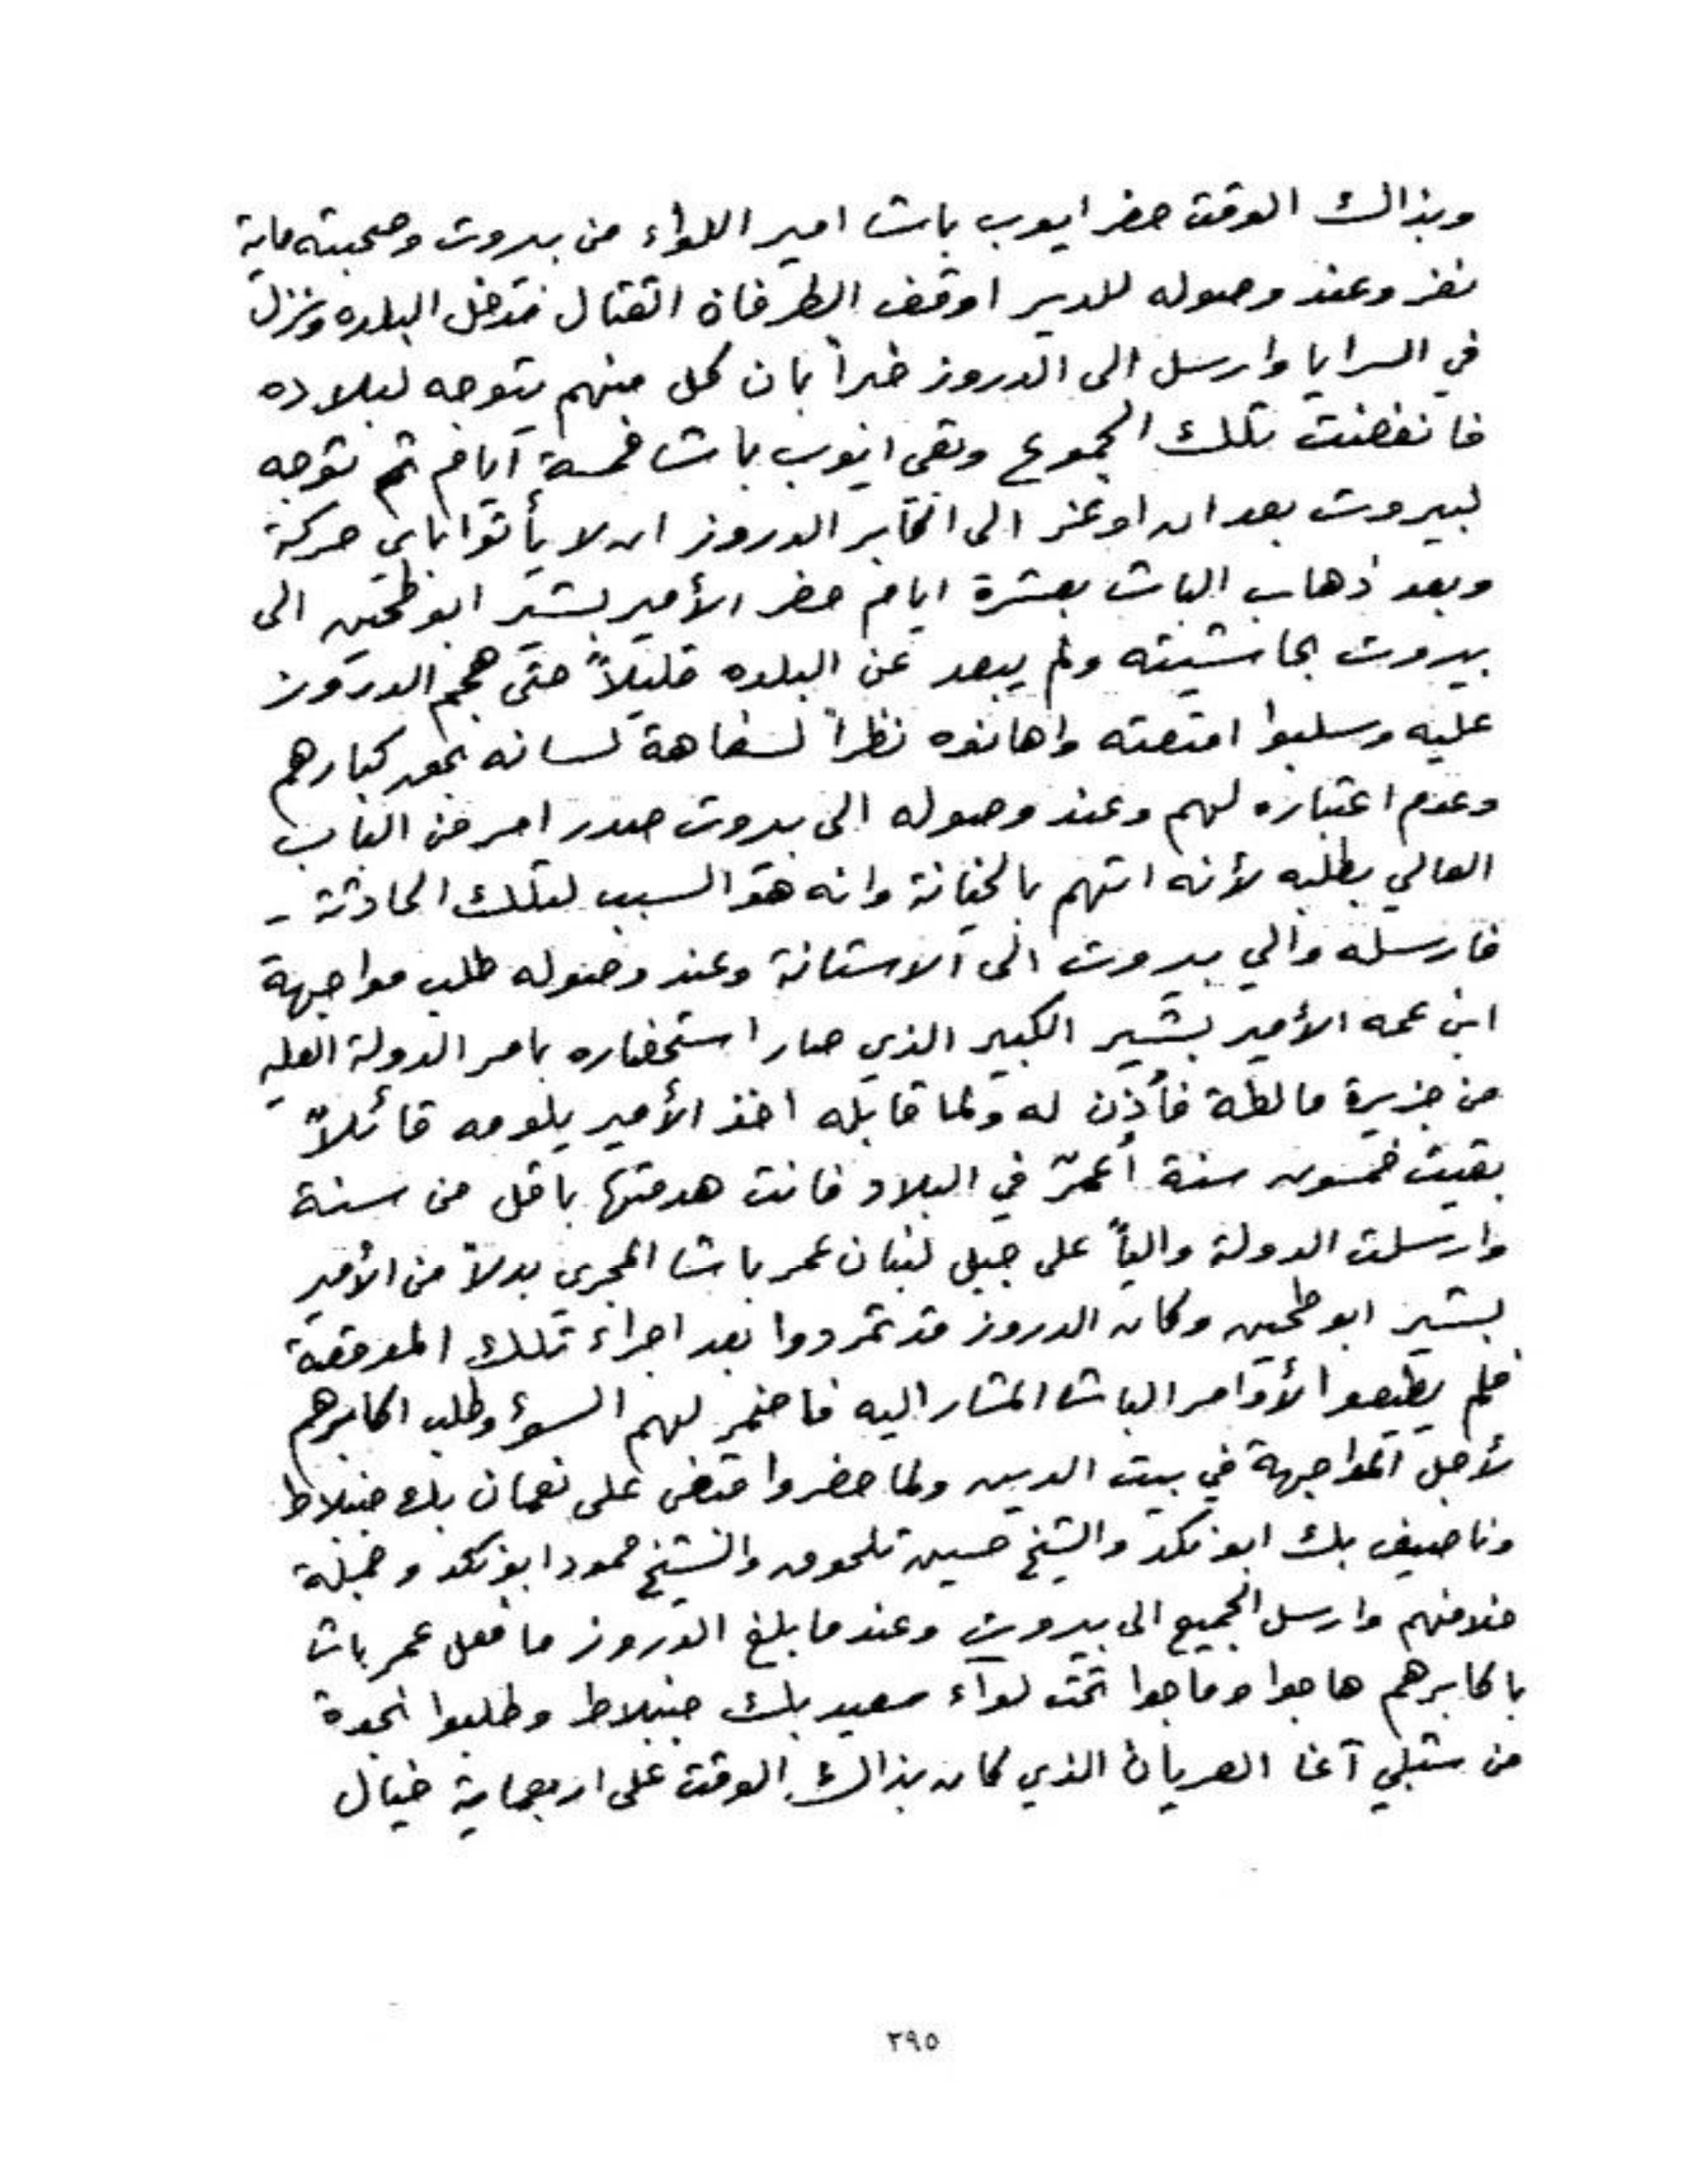 وبذاك الوقت حضر ايوب باشا امير اللواء من بيروت وصحبته ماية
نفر وعند وصوله للدير اوقف الطرفان القتال فدخل البلده ونزل
في السرايا وارسل الى الدروز خبراً بان كل منهم يتوجه لبلاده
فانفضت تلك الجموع وبقى ايوب باشا خمسة ايام ثم توجه
لبيروت بعد ان اوعز الى اكابر الدروز ان لا يأتوا باي حركة
وبعد ذهاب الباشا بعشرة ايام حضر الأمير بشير ابو طحين الى
بيروت بحاشيته ولم يبعد عن البلده قليلاً حتى هجم الدروز
عليه وسلبوا امتعته واهانوه نظراً لسفاهة لسانه بحق كبارهم
وعدم اعتباره لهم وعند وصوله الى بيروت صدر امر من الباب
العالي بطلبه لأنه اتهم بالخيانة وانه هو السبب لتلك الحادثة -
فارسله والي بيروت الى الاستانة وعند وصوله طلب مواجهة
ابن عمه الأمير بشير الكبير الذي صار استحضاره بامر الدولة العليه
من جزيرة مالطة فأذن له ولما قابله اخذ الأمير يلومه قائلاً
بقيت خمسون سنة أعمّر في البلاد فانت هدمتها باقل من سنة
وارسلت الدولة والياً على جبل لبنان عمر باشا المجرى بدلاً من الأمير
بشير ابو طحين وكان الدروز قد تمردوا بعد اجراء تلك الموقعة
فلم يطيعوا لأوامر الباشا المشار اليه فاضمر لهم السؤ وطلب اكابرهم
لأجل المواجهة في بيت الدين ولما حضروا قبض على نعمان بك جنبلاط
وناصيف بك ابو نكد والشيخ حسين تلحوق والشيخ حمود ابو نكد وجملة
خلافهم وارسل الجميع الى بيروت وعندما بلغ الدروز ما فعل عمر باشا
باكابرهم هاجوا وماجوا تحت لواء سعيد بك جنبلاط وطلبوا نجدة
من شبلي آغا العريان الذي كان بذاك الوقت على اربعماية خيال
٢٩٥